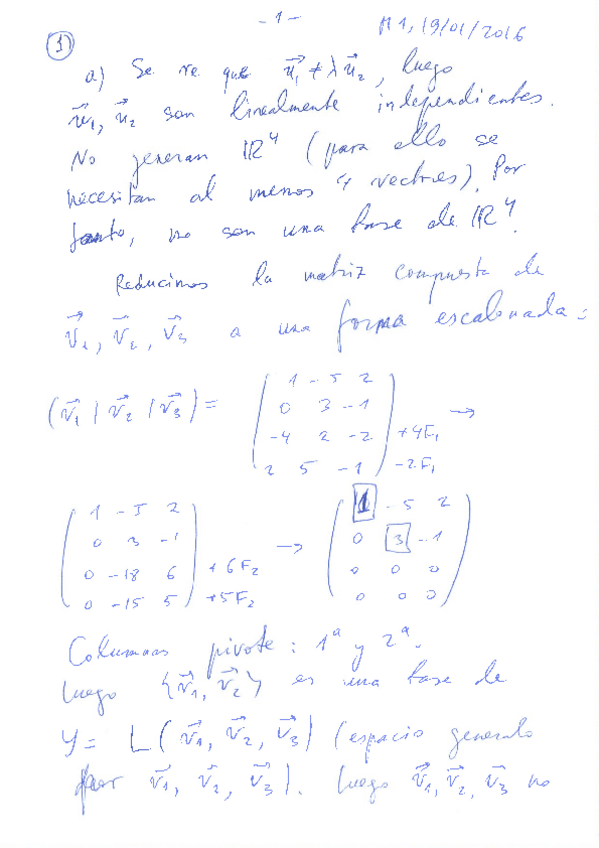 - 1 -
M1, 19/01/2016
1)
a) Se ve que u⃗₁ ≠ λu⃗₂, luego
u⃗₁, u⃗₂ son linealmente independientes.
No generan ℝ⁴ (para ello se
necesitan al menos 4 vectores). Por
tanto, no son una base de ℝ⁴.
Reducimos la matriz compuesta de
v⃗₁, v⃗₂, v⃗₃ a una forma escalonada:
(v⃗₁ | v⃗₂ | v⃗₃) =
1 -5 2
0 3 -1
-4 2 -2 +4F₁ →
2 5 -1 -2F₁
1 -5 2
0 3 -1
0 -18 6 +6F₂ →
0 -15 5 +5F₂
1 -5 2
0 3 -1
0 0 0
0 0 0
Columnas pivote: 1ª y 2ª.
Luego {v⃗₁, v⃗₂} es una base de
Y = L(v⃗₁, v⃗₂, v⃗₃) (espacio generado
por v⃗₁, v⃗₂, v⃗₃). Luego v⃗₁, v⃗₂, v⃗₃ no